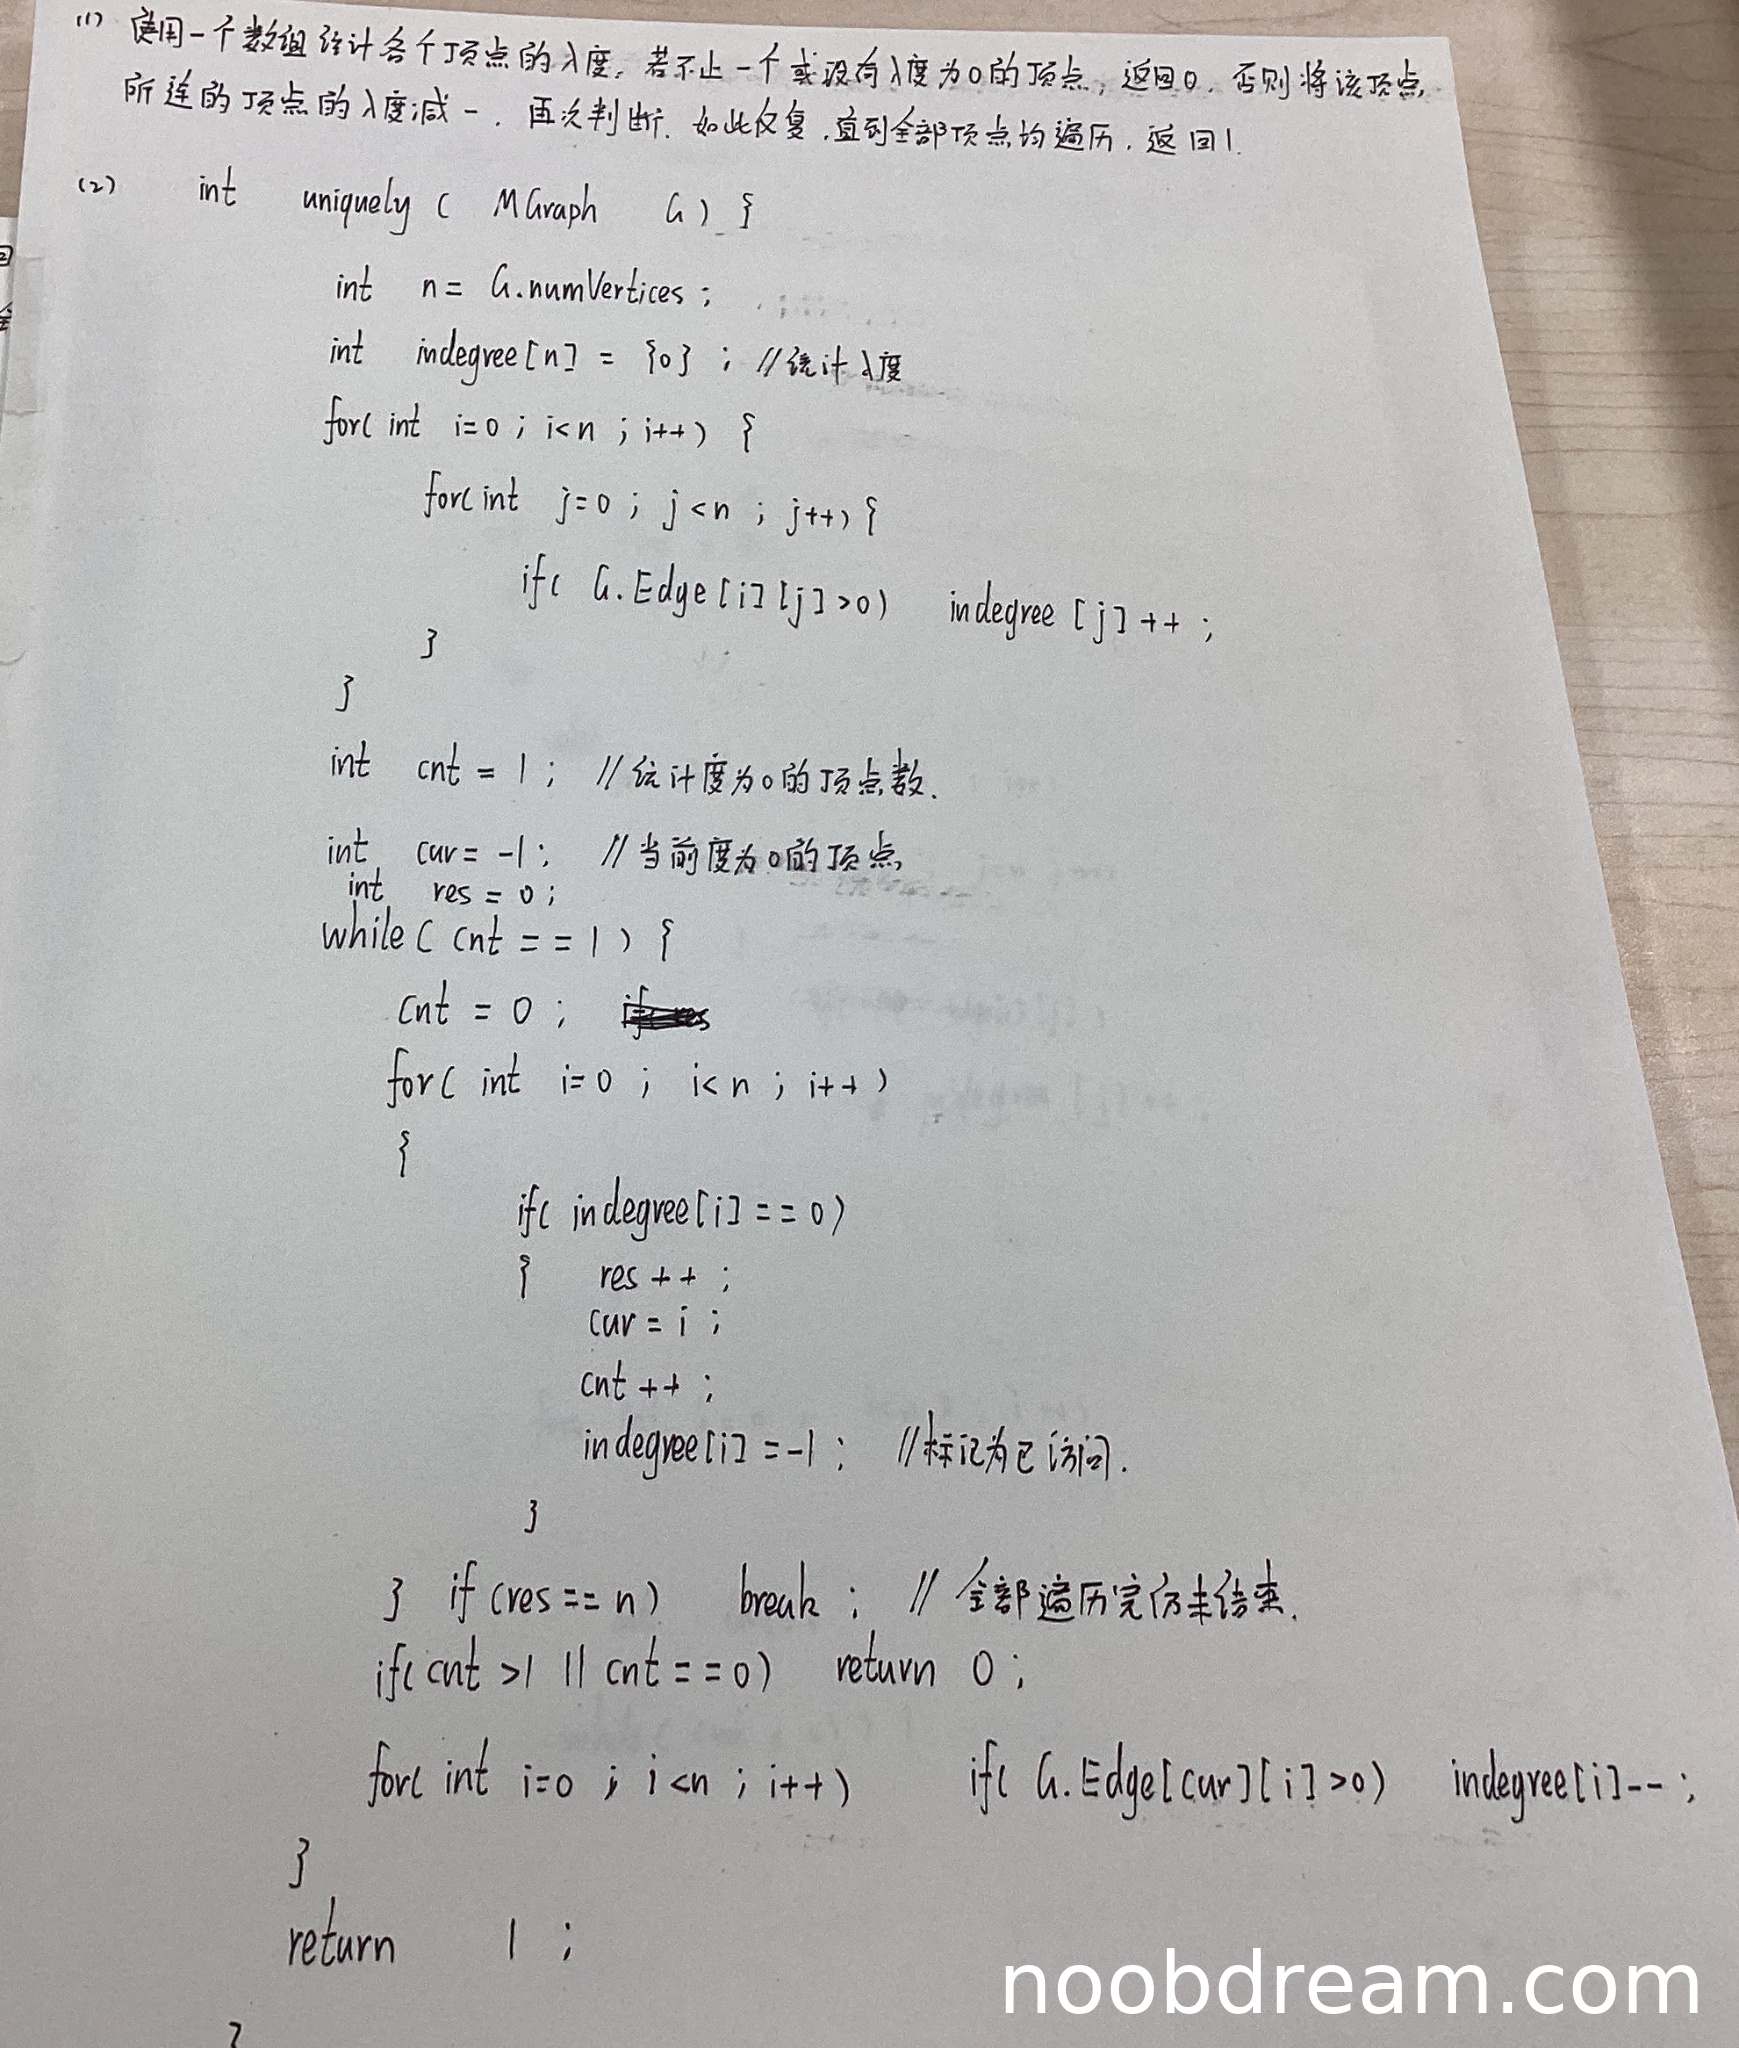 (1) 使用一个数组统计各个顶点的入度，若不止一个或没有入度为0的顶点，返回0，否则将该顶点
所连的顶点的入度减一，再次判断，如此反复，直到全部顶点均遍历，返回1.
(2) int uniquely ( MGraph G) {
int n = G.numVertices ;
int indegree[n] = {0} ; //统计入度
for( int i=0 ; i<n ; i++) {
for(int j=0 ; j<n ; j++) {
if( G.Edge[i][j]>0) indegree[j]++ ;
}
}
int cnt = 1 ; //统计度为0的顶点数.
int cur = -1 ; //当前度为0的顶点
int res = 0 ;
while( cnt == 1 ) {
cnt = 0 ;
for( int i=0 ; i<n ; i++ )
{
if( indegree[i] == 0)
{ res++ ;
cur = i ;
cnt++ ;
indegree[i] = -1 ; //标记为已访问.
}
} if(res == n) break ; // 全部遍历完仍未结束.
if(cnt >1 || cnt == 0) return 0 ;
for( int i=0 ; i<n ; i++) if( G.Edge[cur][i]>0) indegree[i]-- ;
}
return 1 ;
}
noobdream.com